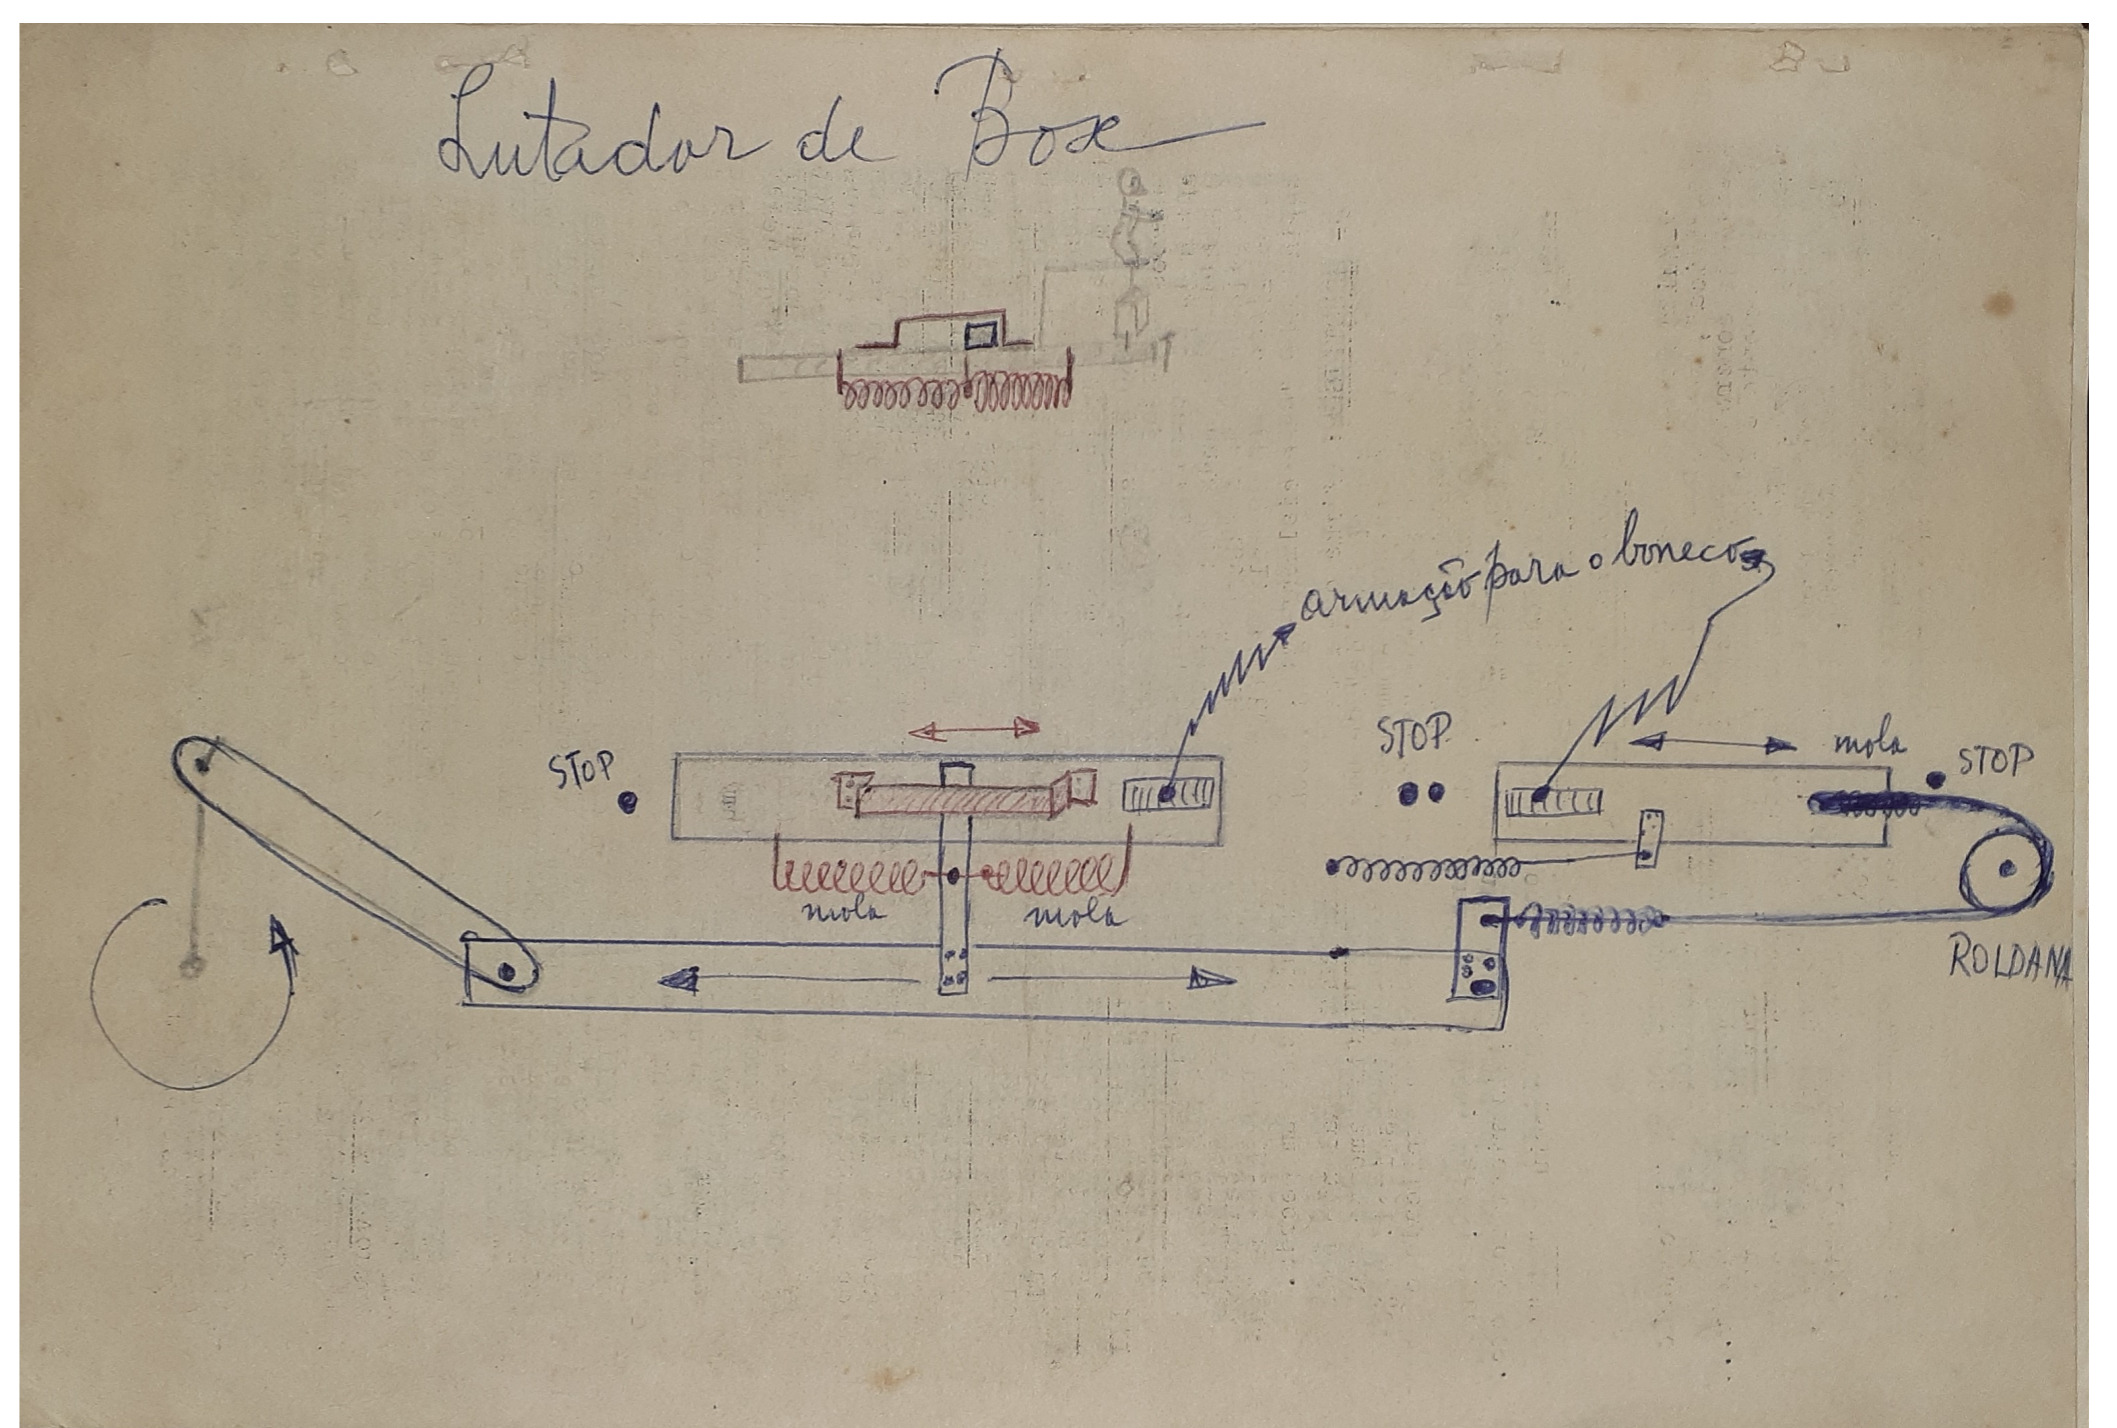 Lutador de Box
armação para o boneco
STOP
STOP
mola
STOP
mola
mola
ROLDANA